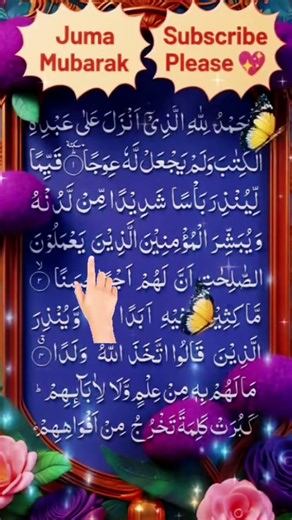 Juma Mubarak
Subscribe Please
لْحَمْدُ لِلّٰهِ الَّذِيْۤ اَنْزَلَ عَلٰى عَبْدِهِ
الْكِتٰبَ وَلَمْ يَجْعَلْ لَّهٗ عِوَجًا ۜ ١ قَيِّمًا
لِّيُنْذِرَ بَاْسًا شَدِيْدًا مِّنْ لَّدُنْهُ
وَيُبَشِّرَ الْمُؤْمِنِيْنَ الَّذِيْنَ يَعْمَلُوْنَ
الصّٰلِحٰتِ اَنَّ لَهُمْ ٢
فِيْهِ اَبَدًا ٣ وَّيُنْذِرَ
الَّذِيْنَ قَالُوا اتَّخَذَ اللّٰهُ وَلَدًا ٤
مَا لَهُمْ بِهٖ مِنْ عِلْمٍ وَّلَا لِاٰبَآئِهِمْ ؕ
كَبُرَتْ كَلِمَةً تَخْرُجُ مِنْ اَفْوَاهِهِمْ